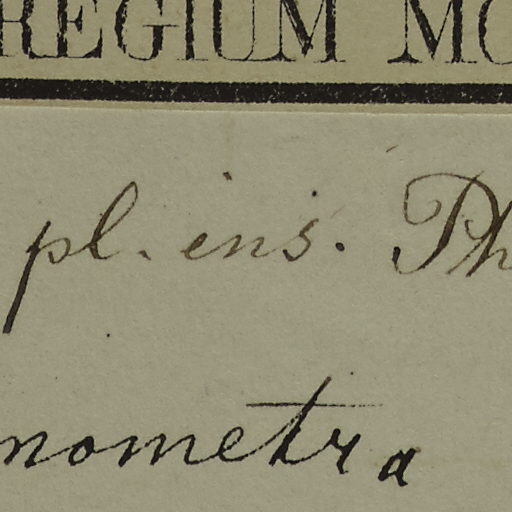 REGIUM MO
pl. ins. Ph
nometra